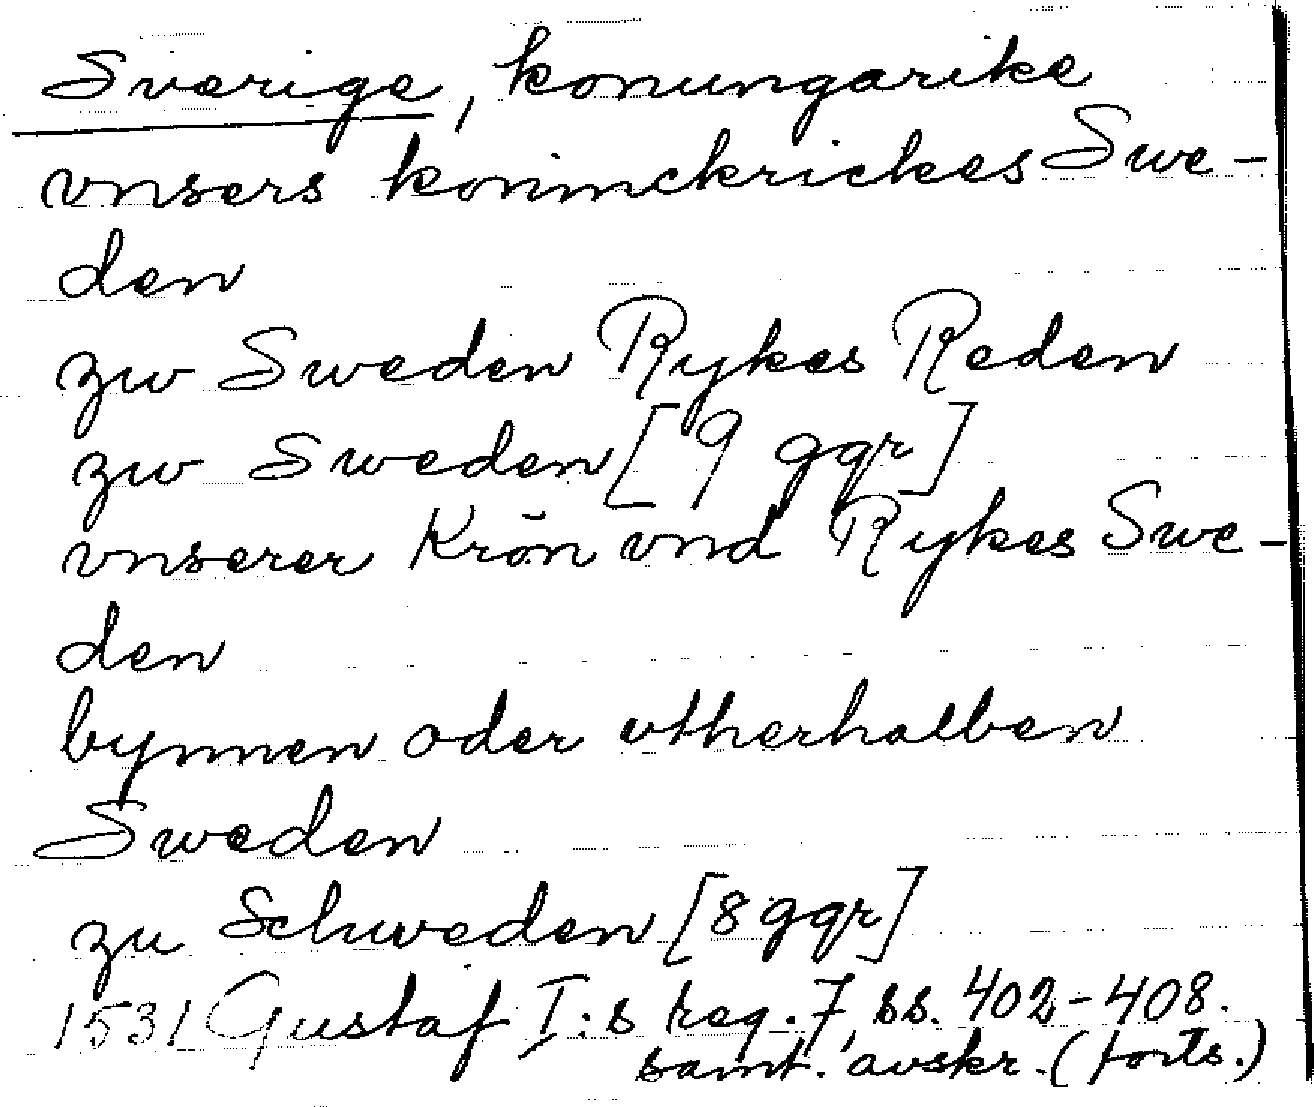 Sverige, konungarike
vnsers konimckrickes Swe-
den
zw Sweden Rykes Reden
zw Sweden [9 ggr]
vnserer Krōn vnd Rykes Swe-
den
bynnen oder vtherhalben
Sweden
zu Schweden [8 ggr]
1531 Gustaf I:s reg. 7, ss. 402-408.
samt. avskr. (forts.)